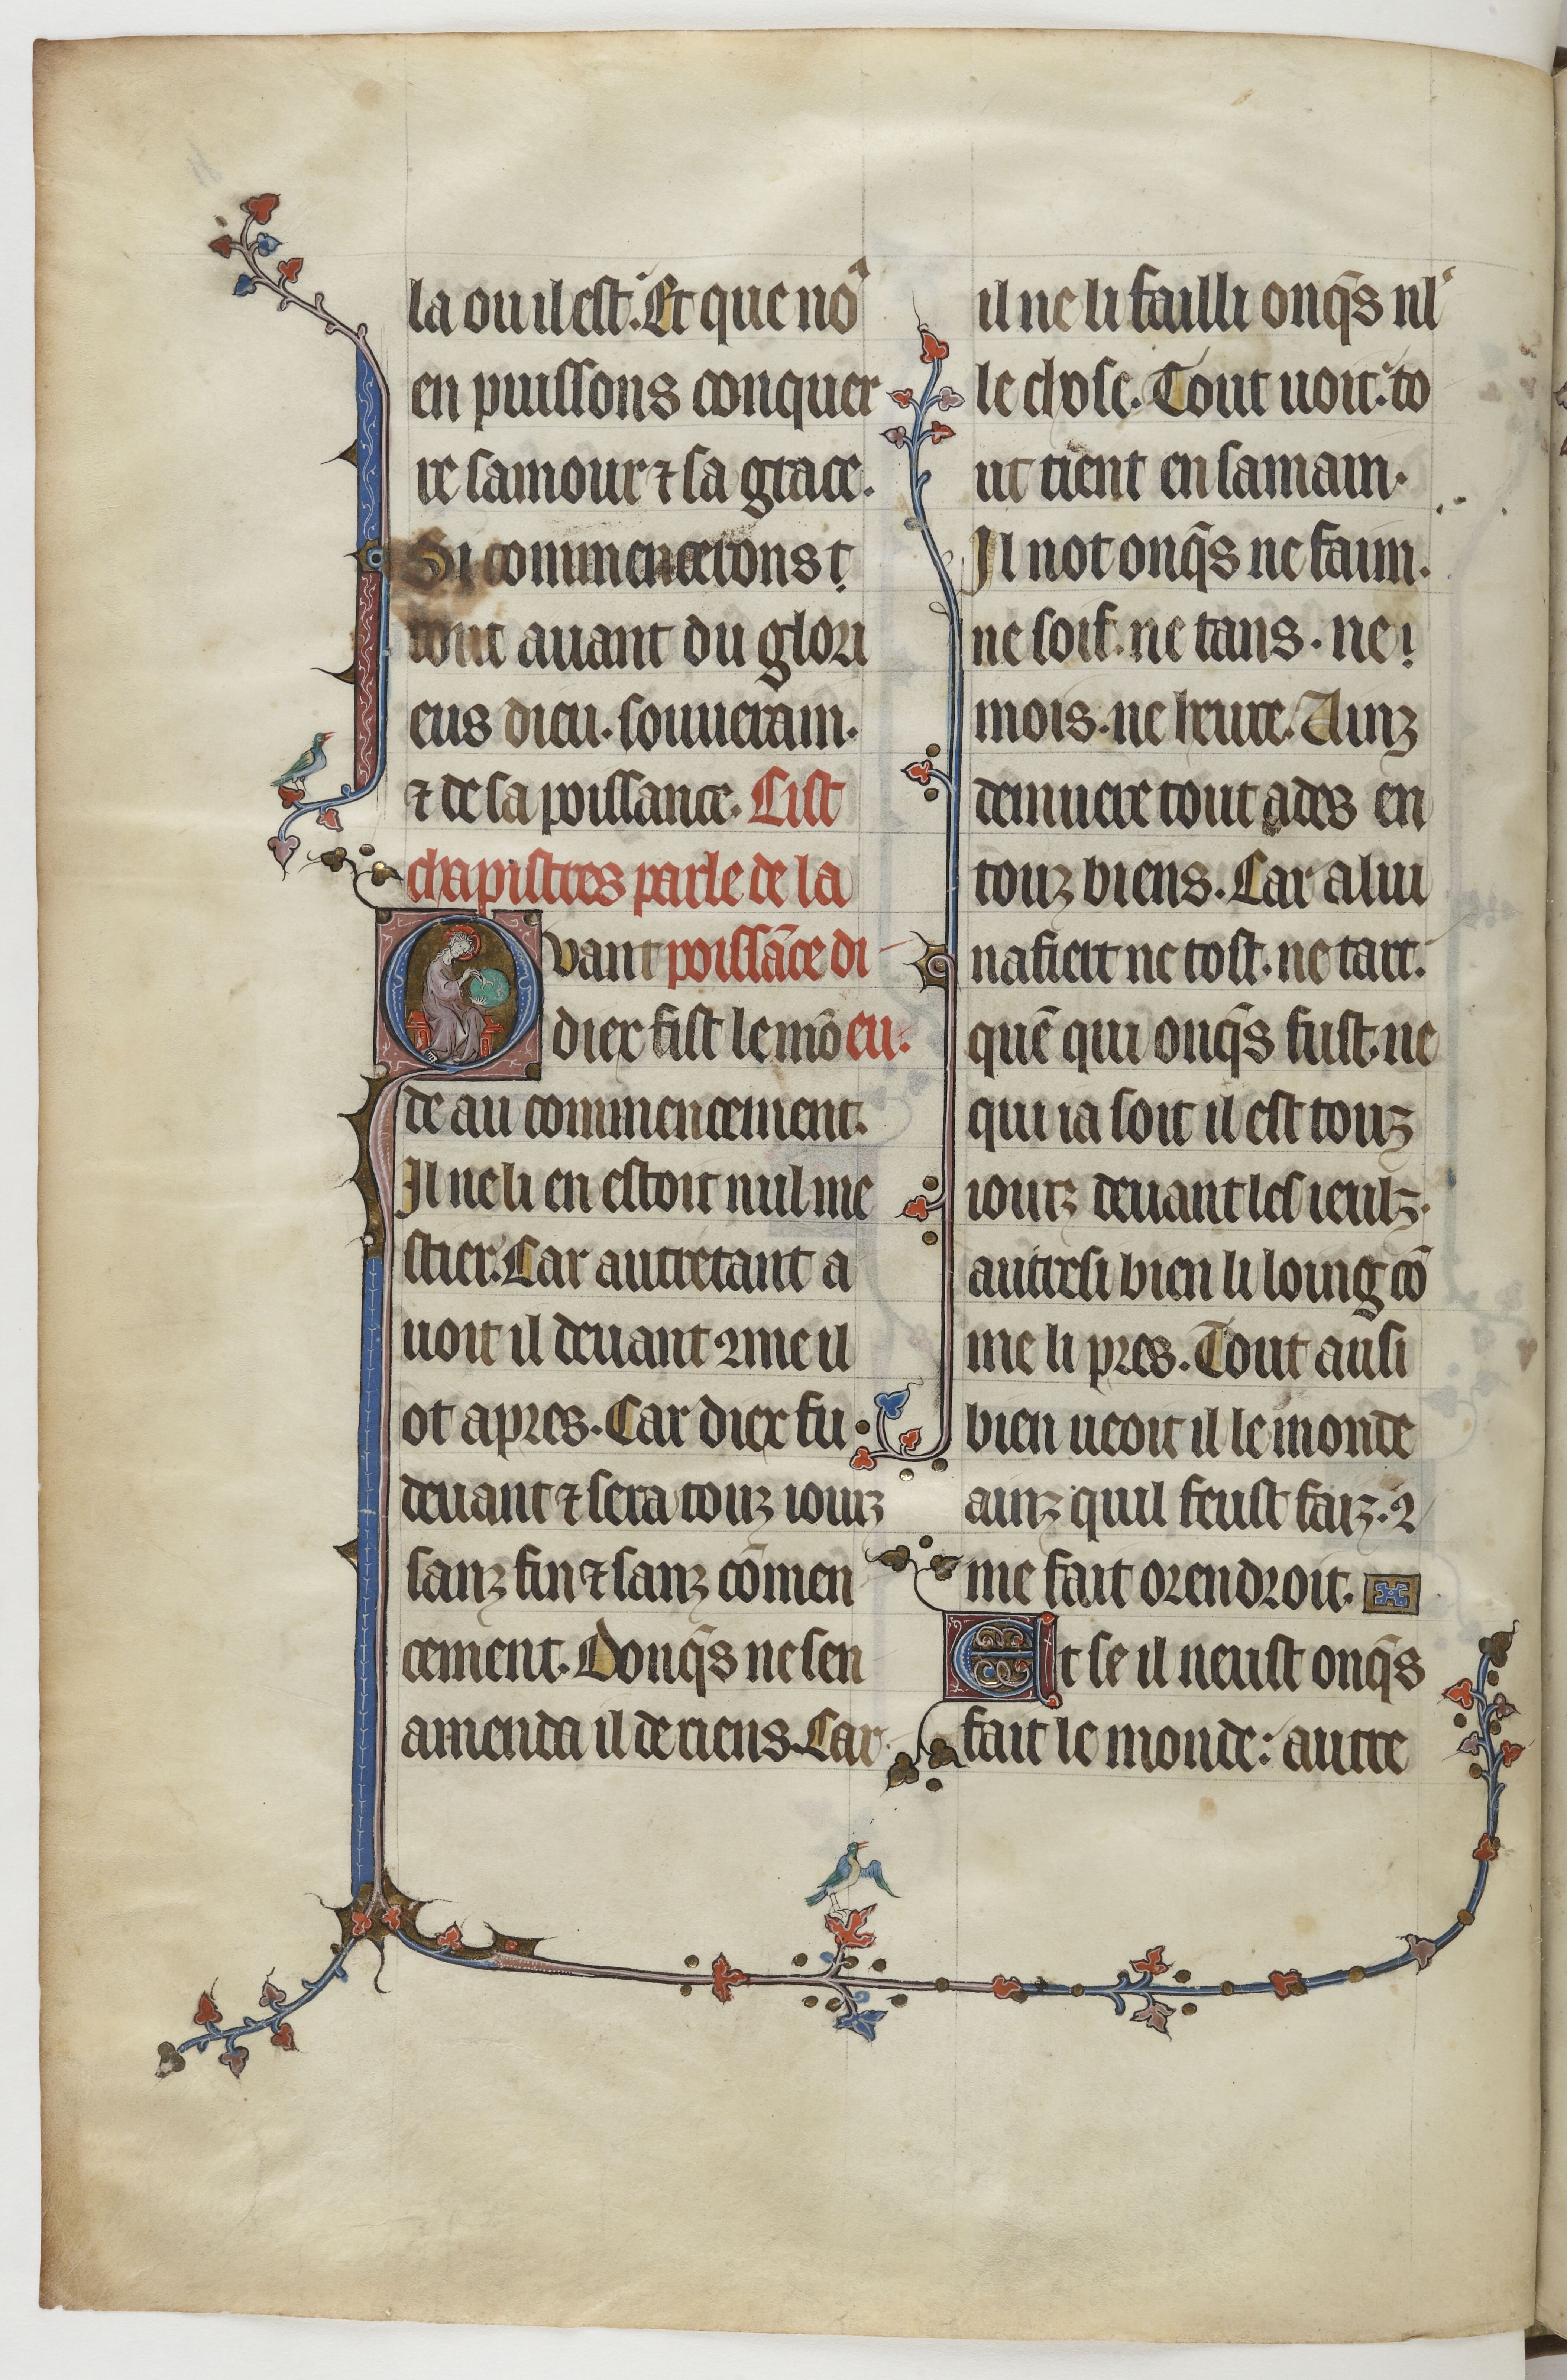 la ou il est. Et que no9
en puissons conquer
re samour ⁊ sa grace.
Si commencerons t
tout auant du glori
eus dieu. souuerain.
⁊ de sa poissance. Cist
chapistres parle de la
Qvant poissāce di
diex fist le mō eu.
de au commencement.
Il ne li en estoit nul me
stier. Car autretant a
uoit il deuant 9me il
ot apres. Car diex fu
deuant ⁊ sera touz iourz
sanz fin ⁊ sanz cōmen
cement. Donq̄s ne sen
amenda il de riens. Car
il ne li failli onq̄s nl'
le chose. Tout uoit: to
ut tient en sa main.
Il not onq̄s ne faim.
ne soif. ne tans. ne
mois. ne heure. Ainz
demuere tout ades en
touz biens. Car a lui
nafiert ne tost. ne tart.
quē qui onq̄s fust. ne
qui ia soit il est touz
iourz deuant les ieulz.
autresi bien li loing cō
me li pres. Tout ausi
bien ueoit il le monde
ainz quil feust faiz. 9
me fait orendroit.
Et se il neust onq̄s
fait le monde: autre